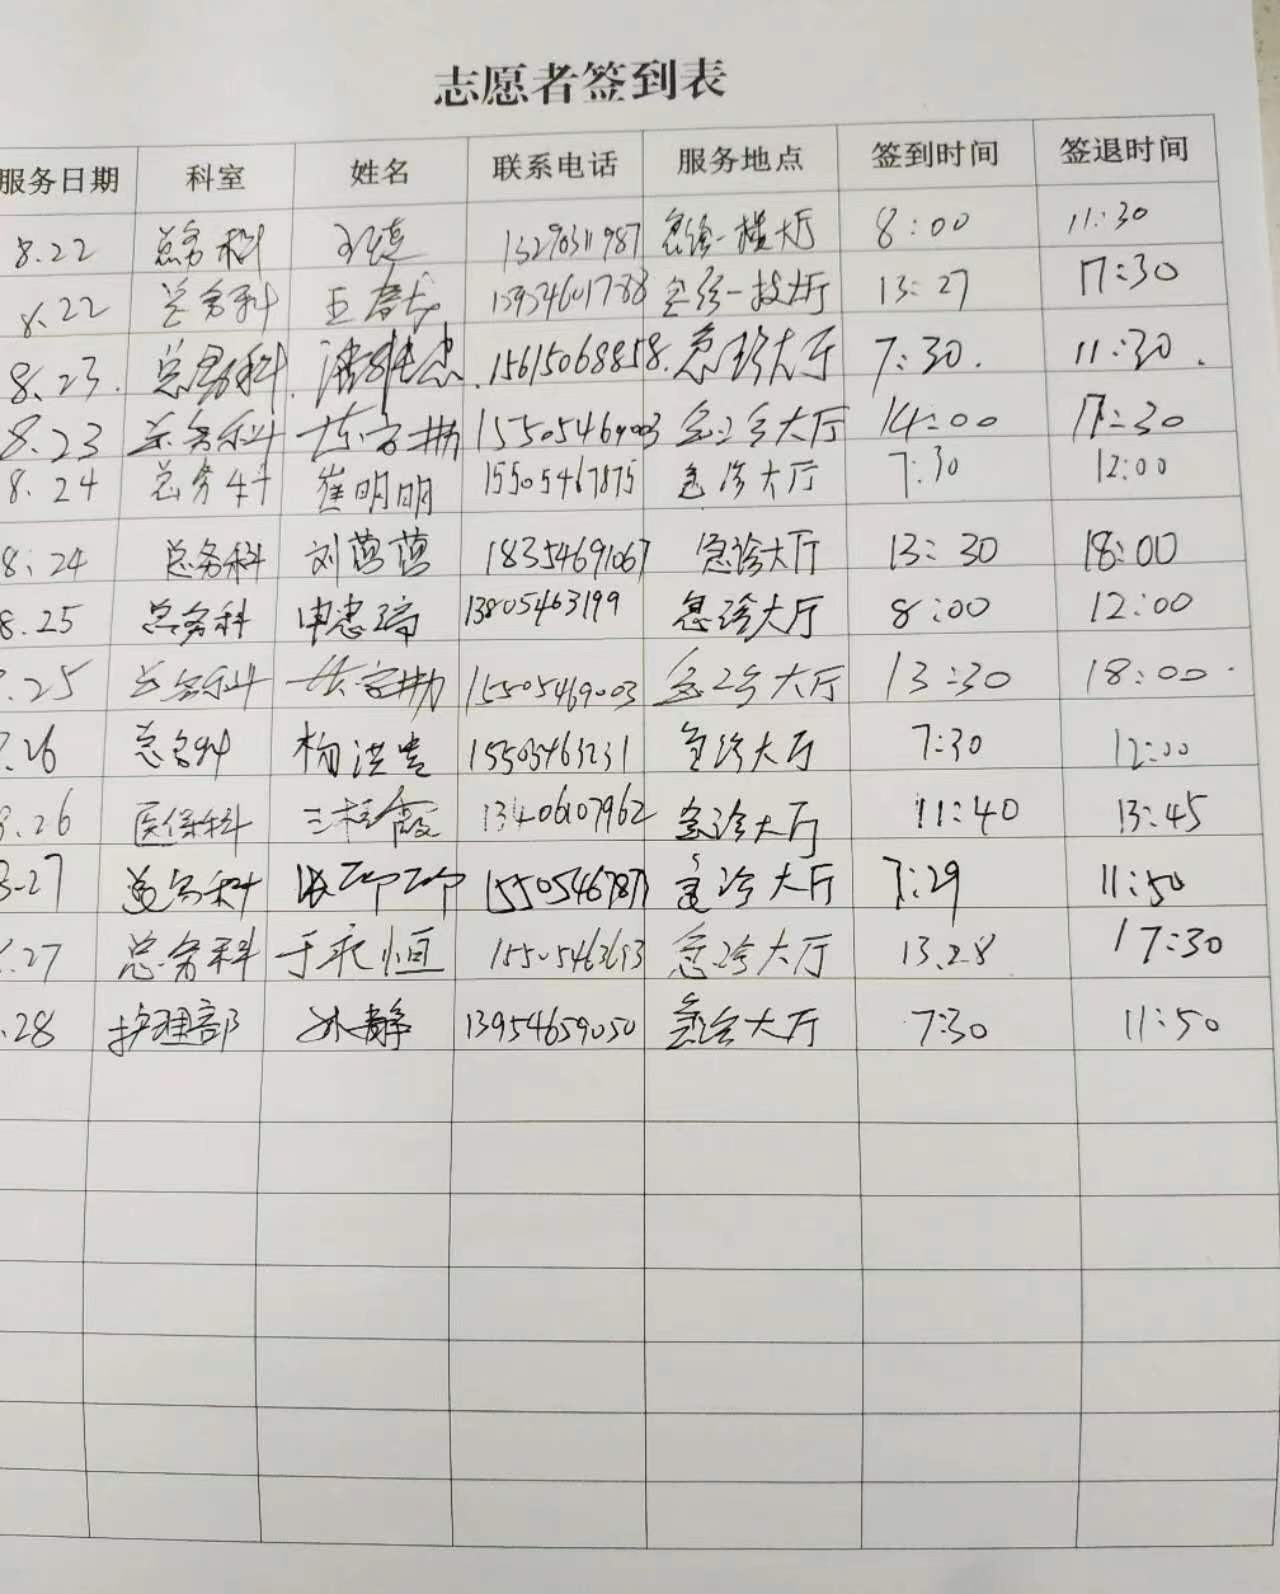 志愿者签到表
服务日期 科室 姓名 联系电话 服务地点 签到时间 签退时间
8.22 总务科 13290311987 急诊一楼大厅 8:00 11:30
8.22 总务科 王 急诊一楼大厅 13:27 17:30
8.23. 总务科. 15615068858. 急诊大厅 7:30. 11:30.
8.23 总务科 15505469003 急诊大厅 14:00 17:30
8.24 总务科 崔明明 15505467875 急诊大厅 7:30 12:00
8.24 总务科 刘茵茵 18354691067 急诊大厅 13:30 18:00
8.25 总务科 申惠 13805463199 急诊大厅 8:00 12:00
.25 总务科 15505469003 急诊大厅 13:30 18:00
.26 总务科 杨洪 15505463231 急诊大厅 7:30 12:00
8.26 医保科 王桂霞 13406107962 急诊大厅 11:40 13:45
8-27 总务科 急诊大厅 7:29 11:50
.27 总务科 于永恒 15505463693 急诊大厅 13.28 17:30
.28 护理部 静 13954659050 急诊大厅 7:30 11:50